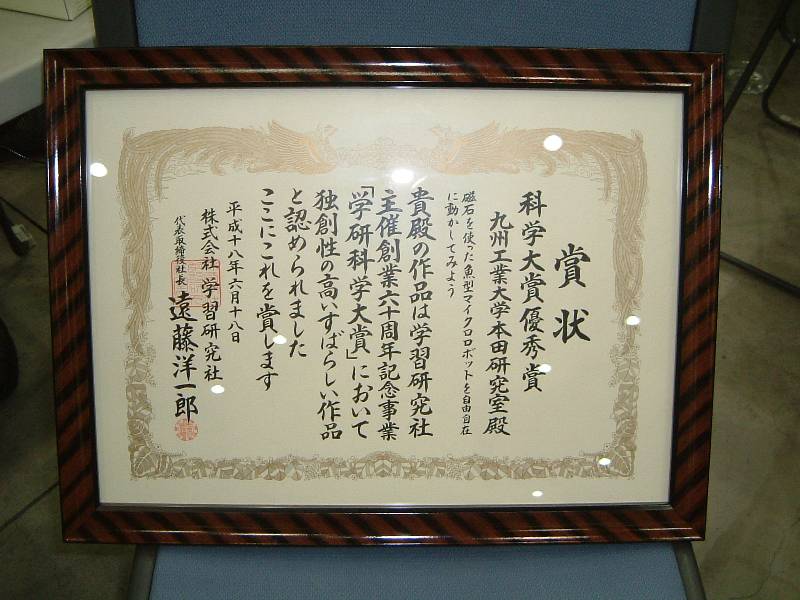 賞状
科学大賞優秀賞
九州工業大学本田研究室殿
磁石を使った魚型マイクロロボットを自由自在
に動かしてみよう
貴殿の作品は学習研究社
主催創業六十周年記念事業
「学研科学大賞」において
独創性の高いすばらしい作品
と認められました
ここにこれを賞します
平成十八年六月十八日
株式会社 学習研究社
代表取締役社長 遠藤洋一郎